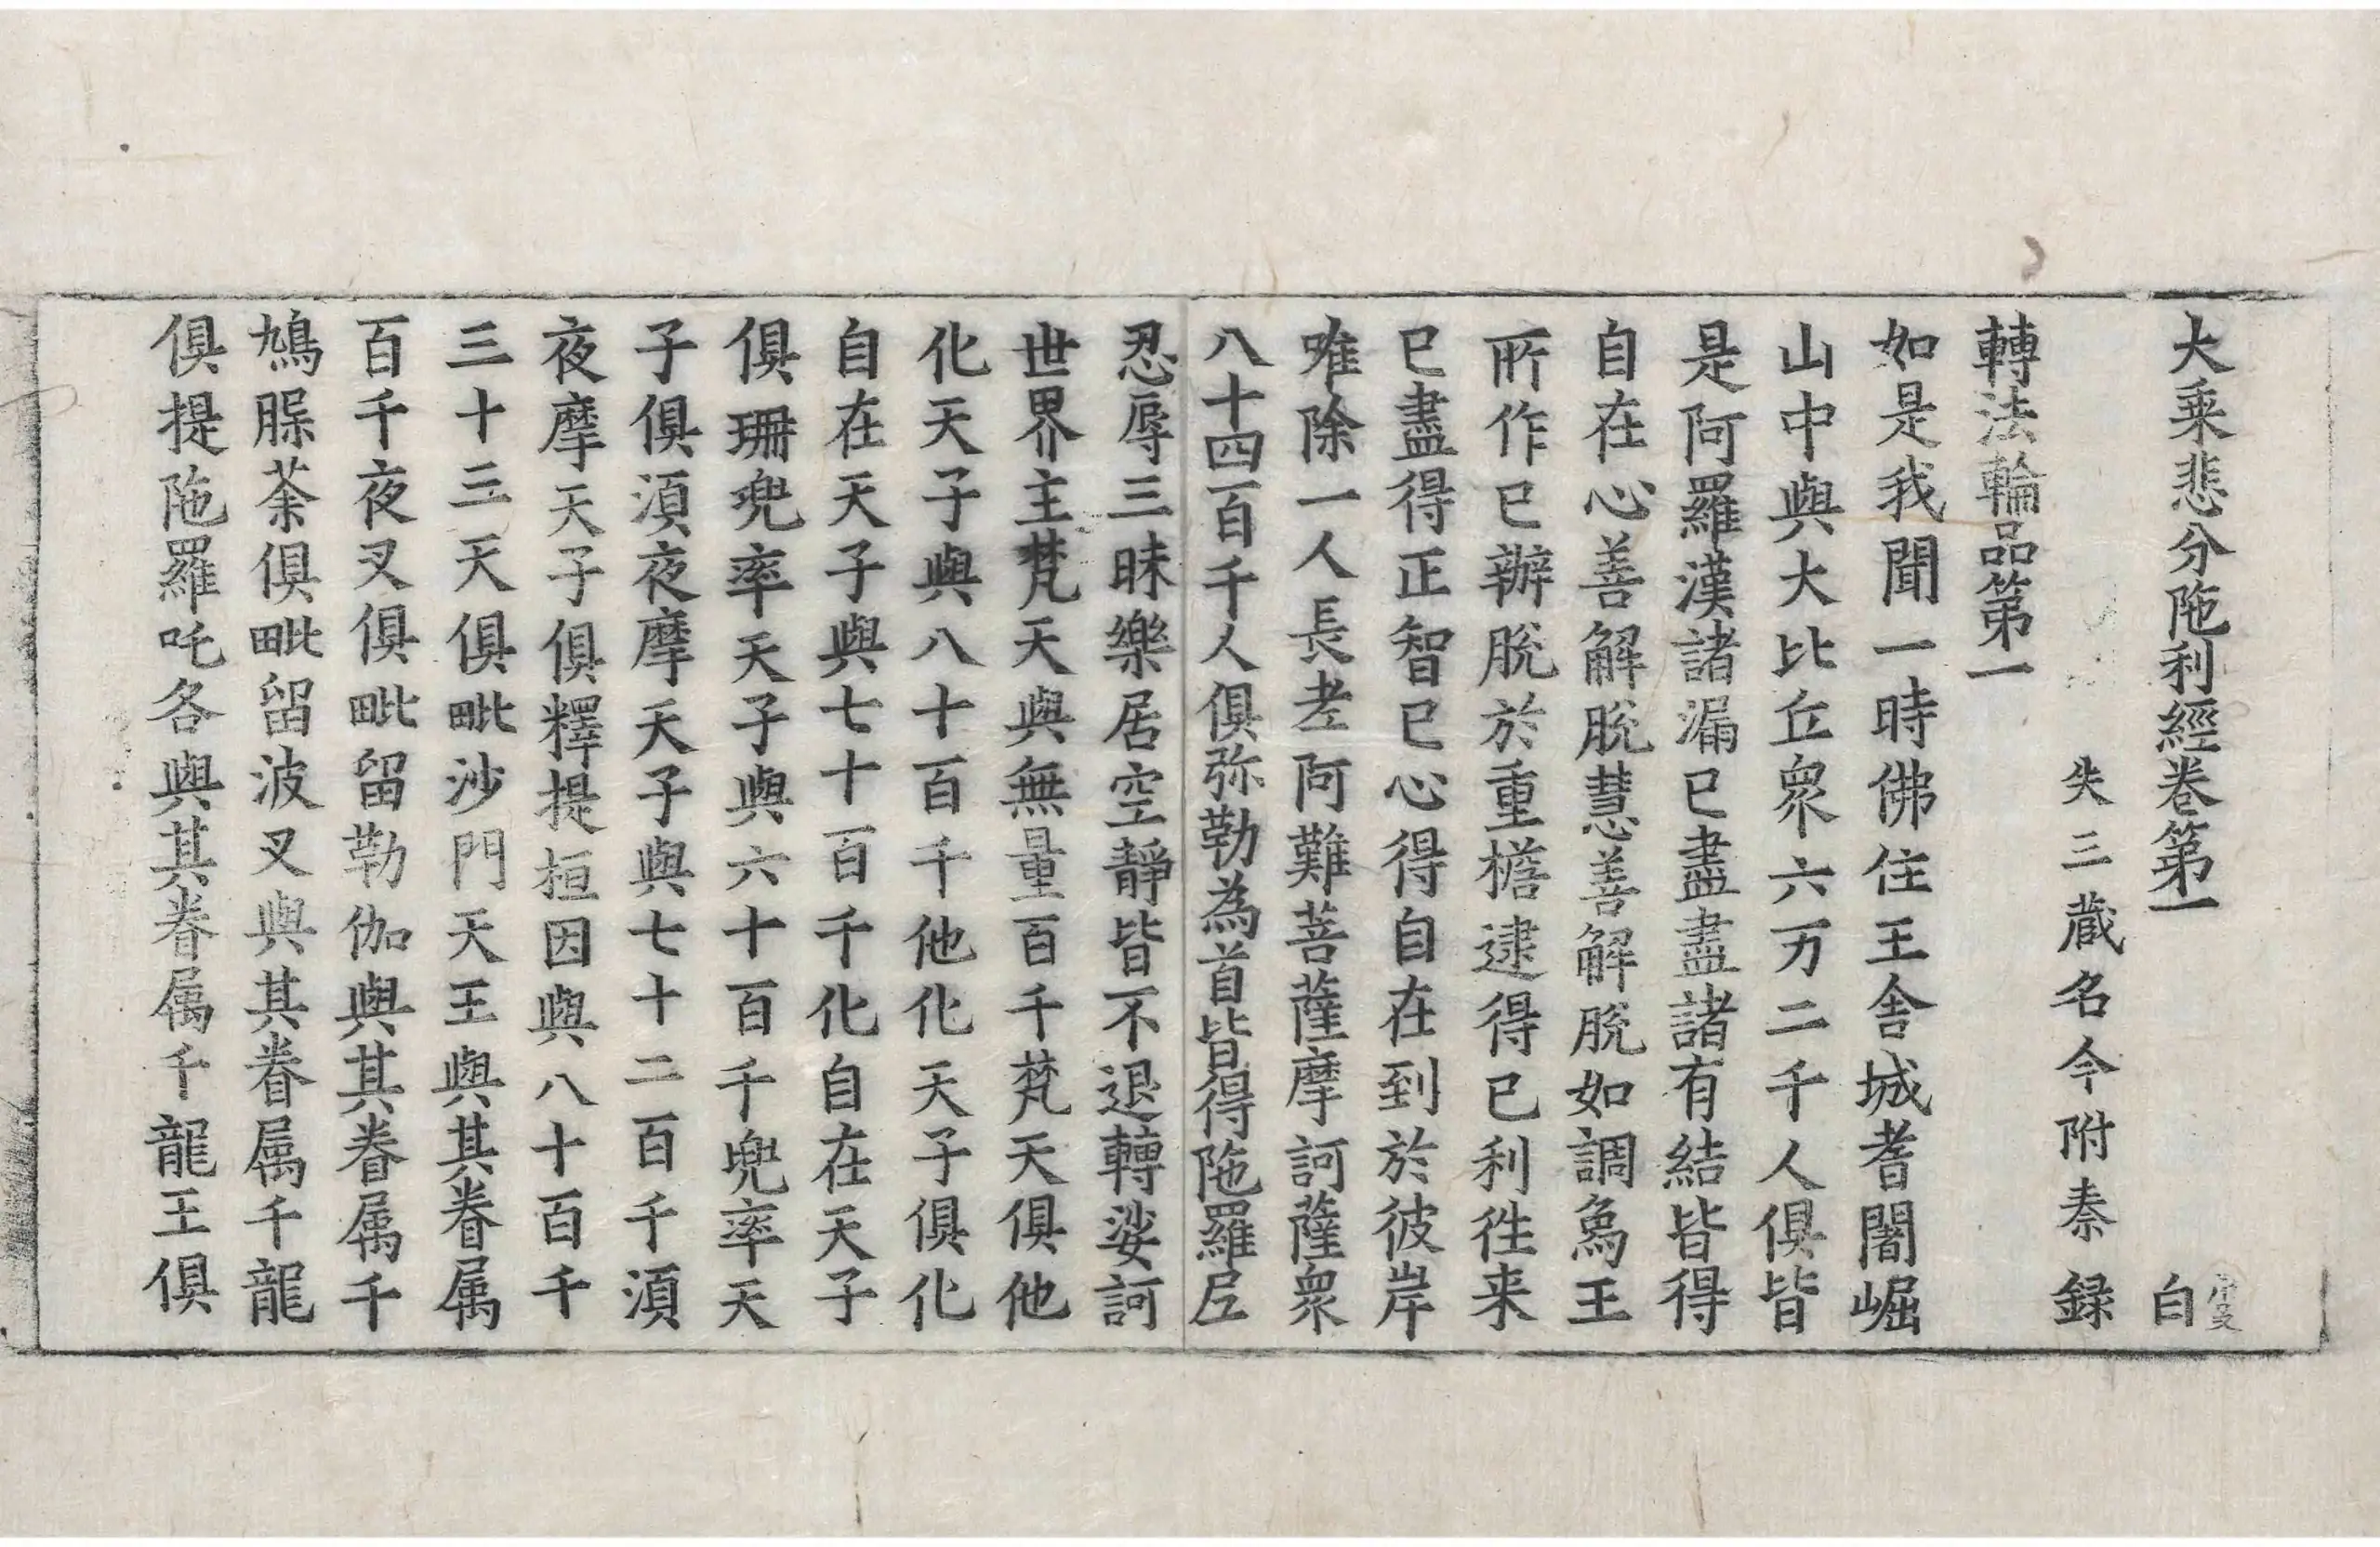 大乘悲分陁利經卷第一 白
失三蔵名今附秦録
轉法輪品第一
如是我聞一時佛住王舍城耆闍崛
山中與大比丘衆六万二千人俱皆
是阿羅漢諸漏已盡盡諸有結皆得
自在心善解脫慧善解脫如調象王
所作已辦脫於重擔逮得已利往来
已盡得正智已心得自在到於彼岸
唯除一人長老阿難菩薩摩訶薩衆
八十四百千人俱弥勒為首皆得陁羅尼
忍辱三昧樂居空靜皆不退轉娑訶
世界主梵天與無量百千梵天俱他
化天子與八十百千他化天子俱化
自在天子與七十百千化自在天子
俱珊兜率天子與六十百千兜率天
子俱湏夜摩天子與七十二百千湏
夜摩天子俱釋提桓因與八十百千
三十三天俱毗沙門天王與其眷属
百千夜叉俱毗留勒伽與其眷属千
鳩腜荼俱毗留波叉與其眷属千龍
俱提陁羅吒各與其眷属千龍王俱